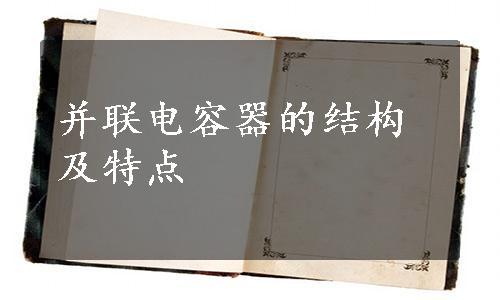 并联电容器的结构
及特点